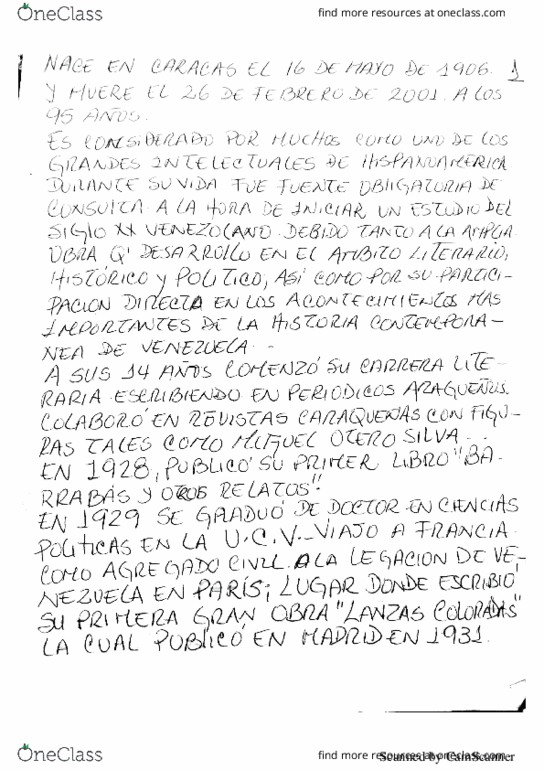 OneClass
find more resources at oneclass.com
NACE EN CARACAS EL 16 DE MAYO DE 1906. 1
Y MUERE EL 26 DE FEBRERO DE 2001. A LOS
95 AÑOS.
ES CONSIDERADO POR MUCHOS COMO UNO DE LOS
GRANDES INTELECTUALES DE HISPANOAMERICA
DURANTE SU VIDA FUE FUENTE OBLIGATORIA DE
CONSULTA A LA HORA DE INICIAR UN ESTUDIO DEL
SIGLO XX VENEZOLANO. DEBIDO TANTO A LA AMPLIA
OBRA Q' DESARROLLO EN EL AMBITO LITERARIO,
HISTÓRICO Y POLITICO, ASÍ COMO POR SU PARTICI-
PACION DIRECTA EN LOS ACONTECIMIENTOS MAS
IMPORTANTES DE LA HISTORIA CONTEMPORA-
NEA DE VENEZUELA.-
A SUS 14 AÑOS COMENZÓ SU CARRERA LITE-
RARIA ESCRIBIENDO EN PERIODICOS ARAGUEÑOS.
COLABORÓ EN REVISTAS CARAQUEÑAS CON FIGU-
RAS TALES COMO MIGUEL OTERO SILVA.-
EN 1928, PUBLICÓ SU PRIMER LIBRO "BA-
RRABÁS Y OTROS RELATOS".
EN 1929 SE GRADUÓ DE DOCTOR EN CIENCIAS
POLITICAS EN LA U.C.V.- VIAJO A FRANCIA
COMO AGREGADO CIVIL A LA LEGACION DE VE-
NEZUELA EN PARÍS; LUGAR DONDE ESCRIBIÓ
SU PRIMERA GRAN OBRA "LANZAS COLORADAS"
LA CUAL PUBLICÓ EN MADRID EN 1931.
OneClass
find more resources at oneclass.com
Scanned by CamScanner